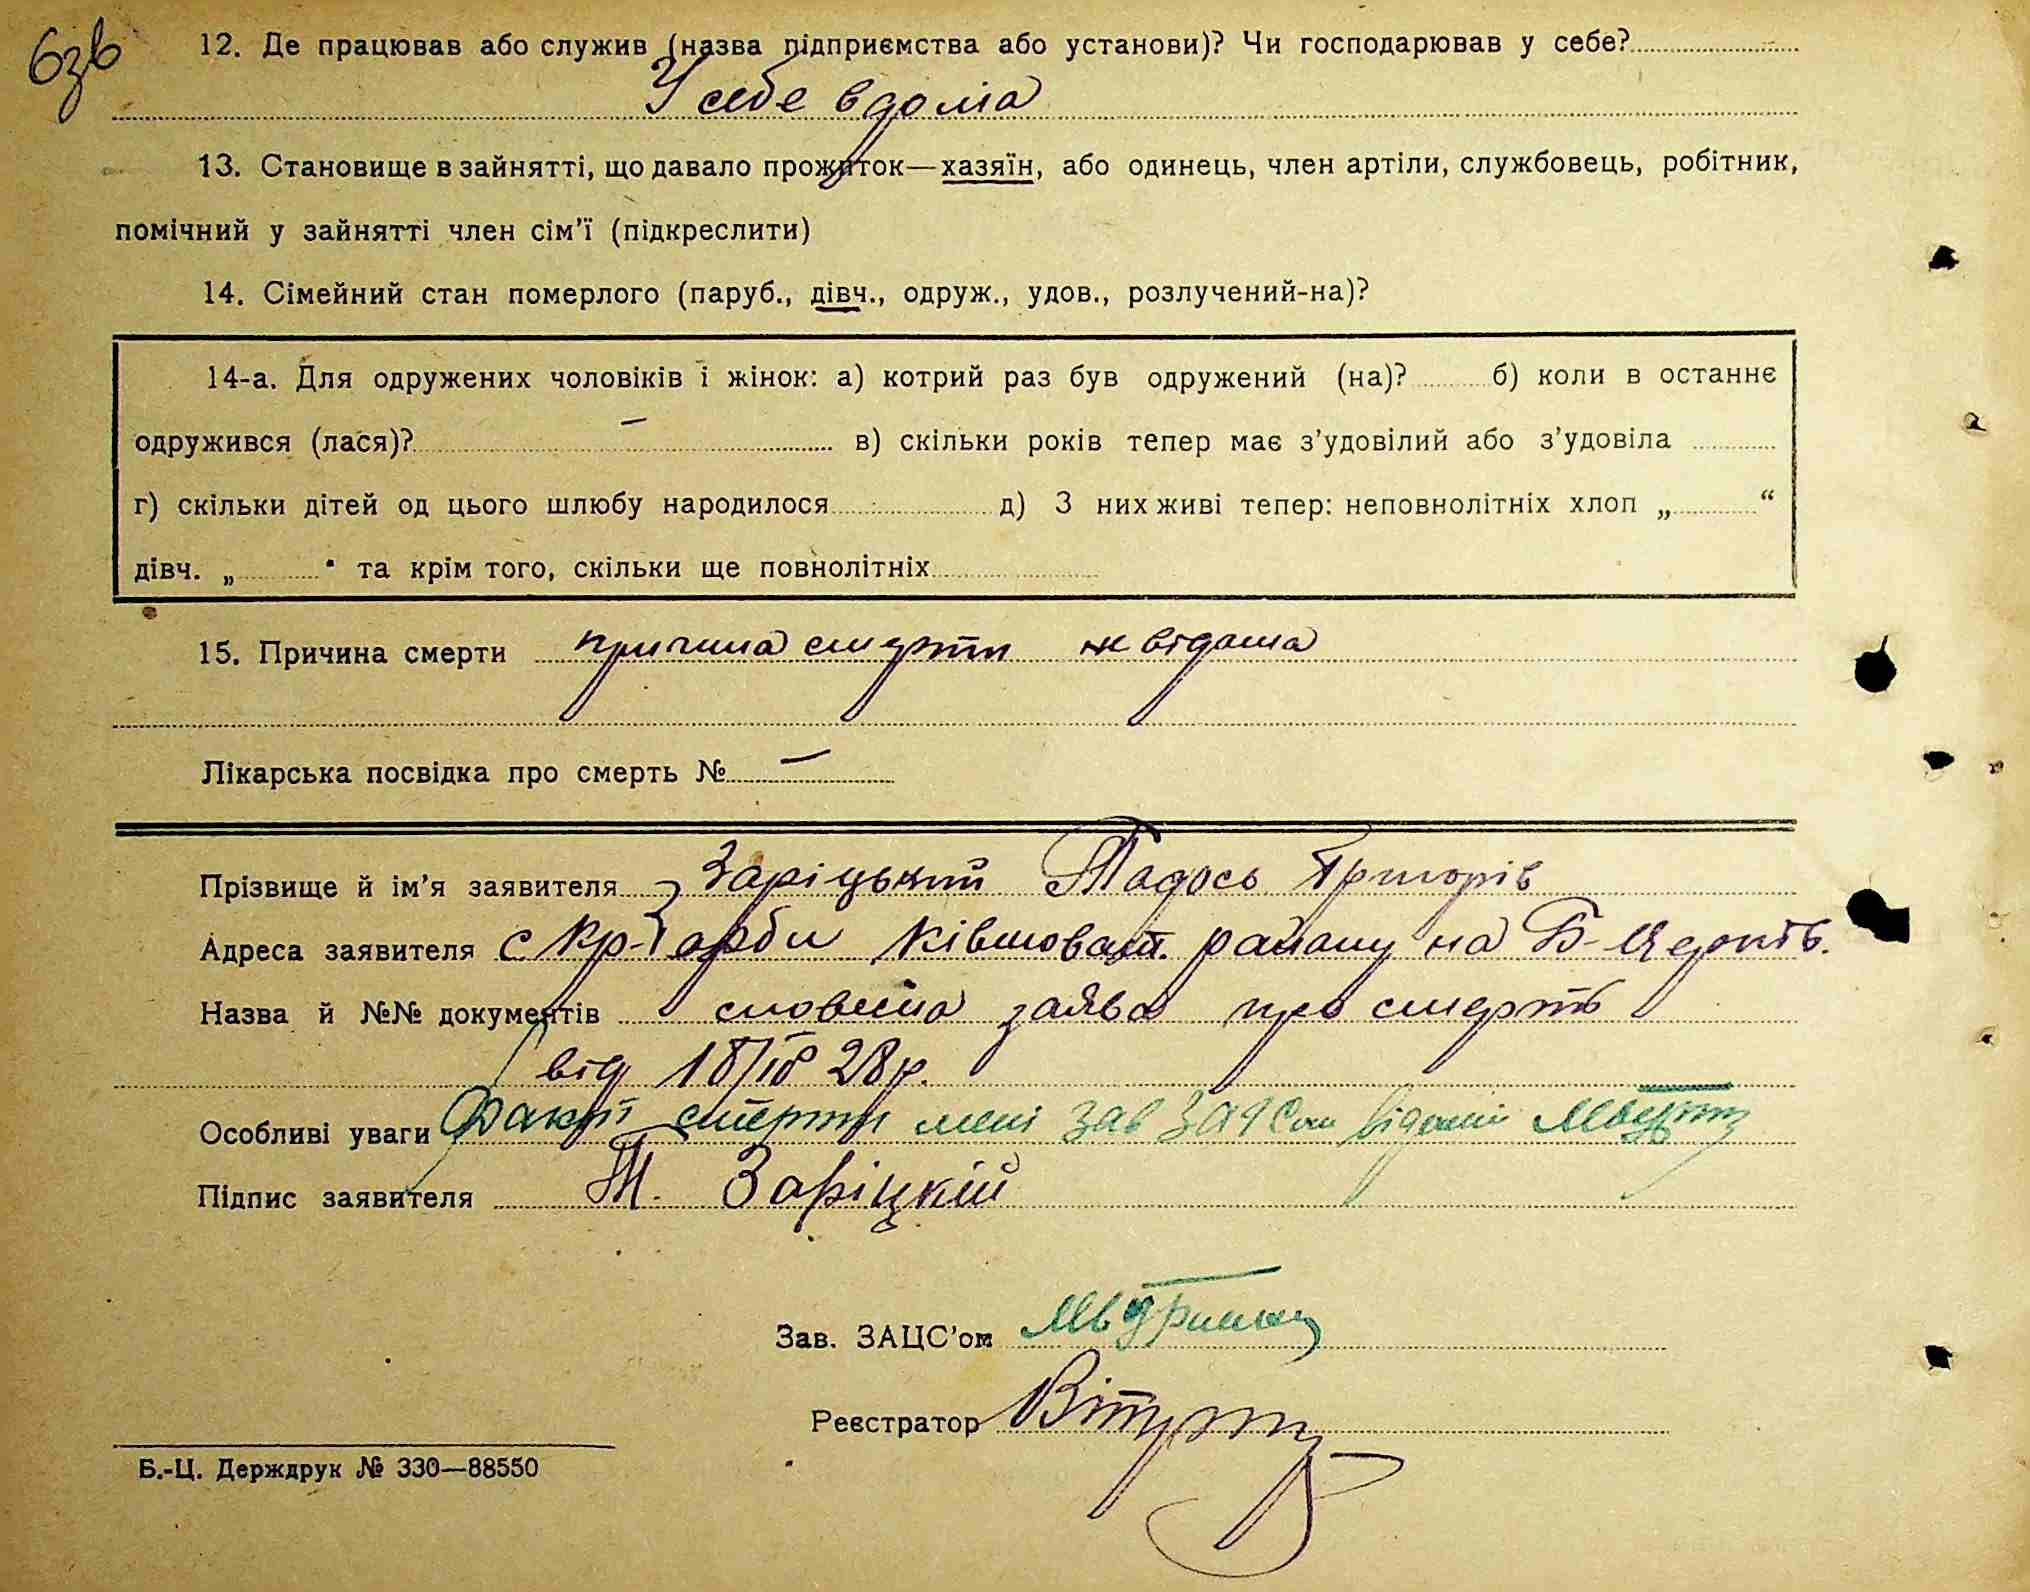 6зв
12. Де працював або служив (назва підприємства або установи)? Чи господарював у себе?
У себе вдома
13. Становище в зайнятті, що давало прожиток—хазяїн, або одинець, член артіли, службовець, робітник,
помічний у зайнятті член сім’ї (підкреслити)
14. Сімейний стан померлого (паруб., дівч., одруж., удов., розлучений-на)?
14-а. Для одружених чоловіків і жінок: а) котрий раз був одружений (на)? б) коли в останнє
одружився (лася)? — в) скільки років тепер має з’удовілий або з’удовіла
г) скільки дітей од цього шлюбу народилося д) З них живі тепер: неповнолітніх хлоп „ “
дівч. „ “ та крім того, скільки ще повнолітніх
15. Причина смерти причина смерти не відома
Лікарська посвідка про смерть № —
Прізвище й ім’я заявителя Заріцький Тадось Григорів
Адреса заявителя с Кр-Горби Ківшоват. району на Б-Церків.
Назва й №№ документів словесна заява про смерть
від 18/ІV 28р.
Особливі уваги Факт смерти мені зав ЗАГСом відомий
Підпис заявителя Т. Заріцкій
Зав. ЗАЦС’ом
Реєстратор
Б.-Ц. Держдрук № 330—88550